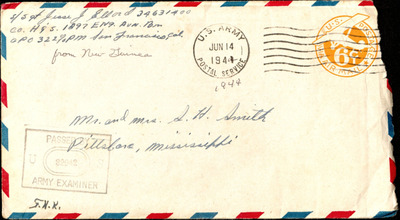 T/Sgt 34631400
Co. H & S. 1897 Engr. Avn. Bn
APO 322 % PM San Francisco, Cal
from New Guinea
U.S. ARMY
JUN 14
1944
POSTAL SERVICE
1944
6¢
Mr. and Mrs. S. H. Smith
Pittsboro, Mississippi
PASSED
ARMY EXAMINER